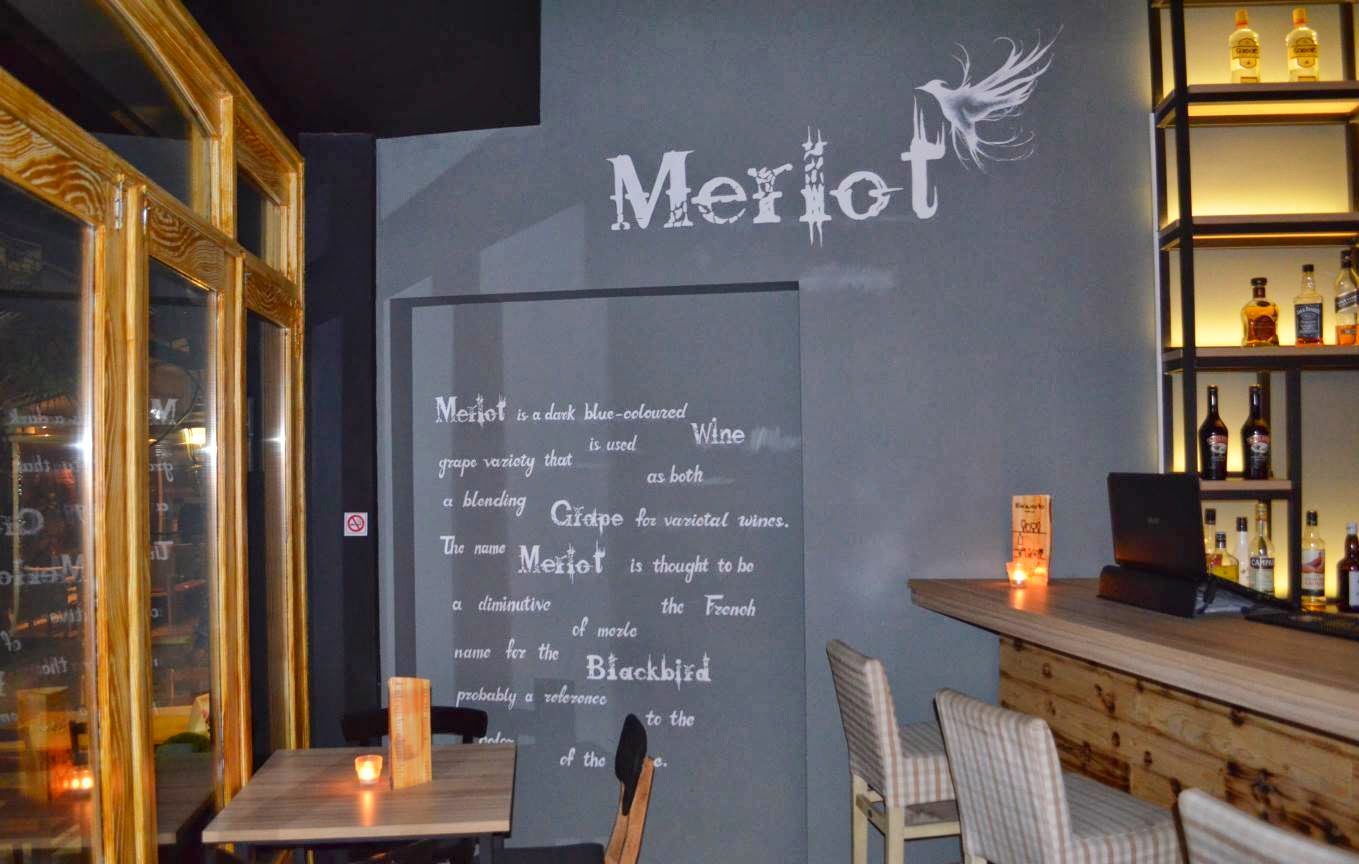 Merlot
Merlot is a dark blue-coloured
is used Wine
grape variety that
as both
a blending
Grape for varietal wines.
The name
Merlot is thought to be
a diminutive the French
of merle
name for the
Blackbird
probably a reference
to the
of the
GORDON'S
GORDON'S
JACK DANIEL'S
CAMPA